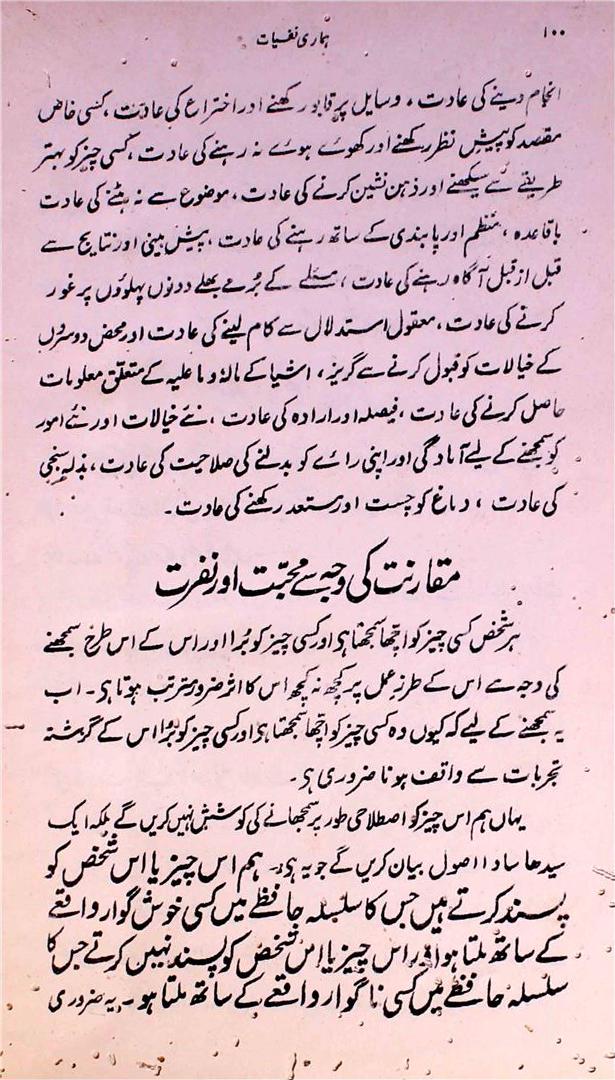 ۱۰۰
ہماری نفسیات
انجام دینے کی عادت، وسایل پر قابو رکھنے اور اختراع کی عادت، کسی خاص
مقصد کو پیش نظر رکھنے اور کھوے ہوے نہ رہنے کی عادت، کسی چیز کو بہتر
طریقے سے سیکھنے اور ذہن نشین کرنے کی عادت، موضوع سے نہ ہٹنے کی عادت
باقاعدہ، منظم اور پابندی کے ساتھ رہنے کی عادت، پیش بینی اور نتایج سے
قبل از قبل آگاہ رہنے کی عادت، مسئلے کے بُرے بھلے دونوں پہلوؤں پر غور
کرنے کی عادت، معقول استدلال سے کام لینے کی عادت اور محض دوسروں
کے خیالات کو قبول کرنے سے گریز، اشیا کے مالہٗ وما علیہ کے متعلق معلومات
حاصل کرنے کی عادت، فیصلہ اور ارادہ کی عادت، نئے خیالات اور نئے امور
کو سمجھنے کے لیے آمادگی اور اپنی راے کو بدلنے کی صلاحیت کی عادت، بذلہ سنجی
کی عادت، دماغ کو چست اور مستعد رکھنے کی عادت۔
مقارنت کی وجہ سے محبّت اور نفرت
ہر شخص کسی چیز کو اچھا سمجھتا ہو اور کسی چیز کو بُرا اور اس کے اس طرح سمجھنے
کی وجہ سے اس کے طرزِ عمل پر کچھ نہ کچھ اس کا اثر ضرور مترتب ہوتا ہو۔ اب
یہ سمجھنے کے لیے کہ کیوں وہ کسی چیز کو اچھا سمجھتا ہو اور کسی چیز کو بُرا اس کے گزشتہ
تجربات سے واقف ہونا ضروری ہو۔
یہاں ہم اس چیز کو اصطلاحی طور پر سمجھانے کی کوشش نہیں کریں گے بلکہ ایک
سیدھا سادا اصول بیان کریں گے جو یہ ہو:۔ ہم اس چیز یا اس شخص کو
پسند کرتے ہیں جس کا سلسلہ حافظے میں کسی خوش گوار واقعے
کے ساتھ ملتا ہو اور اس چیز یا اس شخص کو پسند نہیں کرتے جس کا
سلسلہ حافظے میں کسی ناگوار واقعے کے ساتھ ملتا ہو۔ یہ ضروری